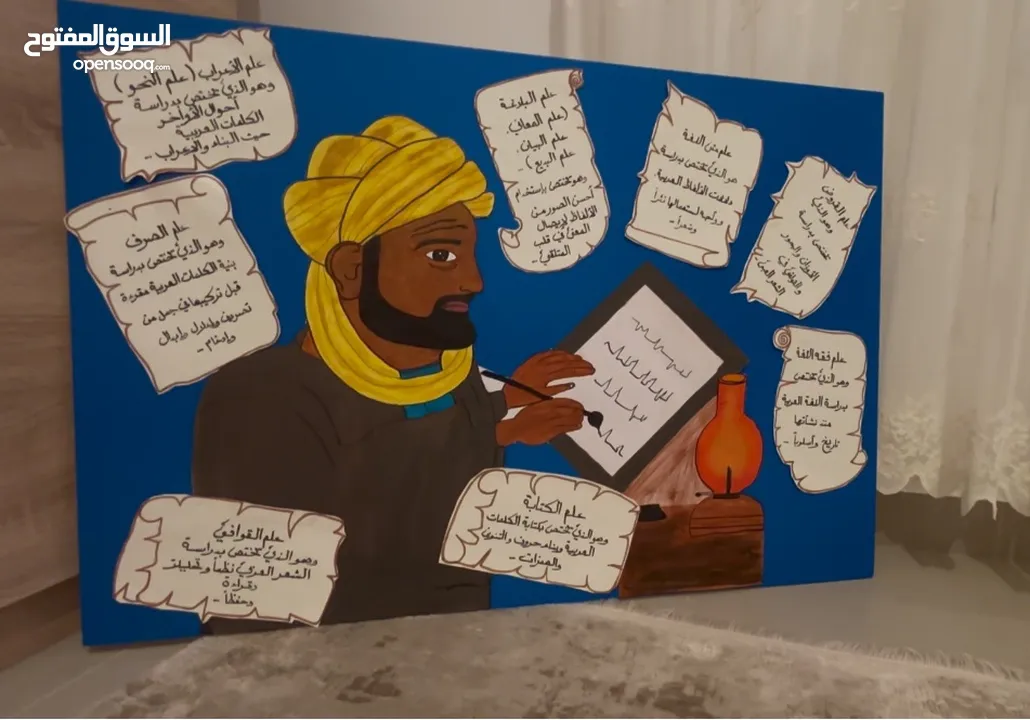 السوق المفتوح
opensooq.com
علم الإعراب (علم النحو)
وهو الذي يختص بدراسة
أحوال الأواخر
الكلمات العربية
حيث البناء والإعراب ..
علم الصرف
وهو الذي يختص بدراسة
بنية الكلمات العربية مفردة
قبل تركيبها في جمل من
تصريف وإعلال وإبدال
وإدغام ..
علم البلاغة
(علم المعاني.
علم البيان.
علم البديع) ..
وهو يختص باستخدام
أحسن الصور من
الألفاظ لإيصال
المعنى في قلب
المتلقي ..
علم متن اللغة
هو الذي يختص بدراسة
الألفاظ العربية
استعمالها نثراً
وشعراً ..
علم العروض
وهو الذي
يختص بدراسة
الأوزان والبحور
والقوافي في
الشعر العربي
علم فقه اللغة
وهو الذي يختص
بدراسة اللغة العربية
منذ نشأتها
تاريخ وأسلوباً ..
علم القوافي
وهو الذي يختص بدراسة
الشعر العربي نظماً وتحليلاً
وقراءة
وحفظاً ..
علم الكتابة
وهو الذي يختص بكتابة الكلمات
العربية وبناء حروف والتنوين
والهمزات ..